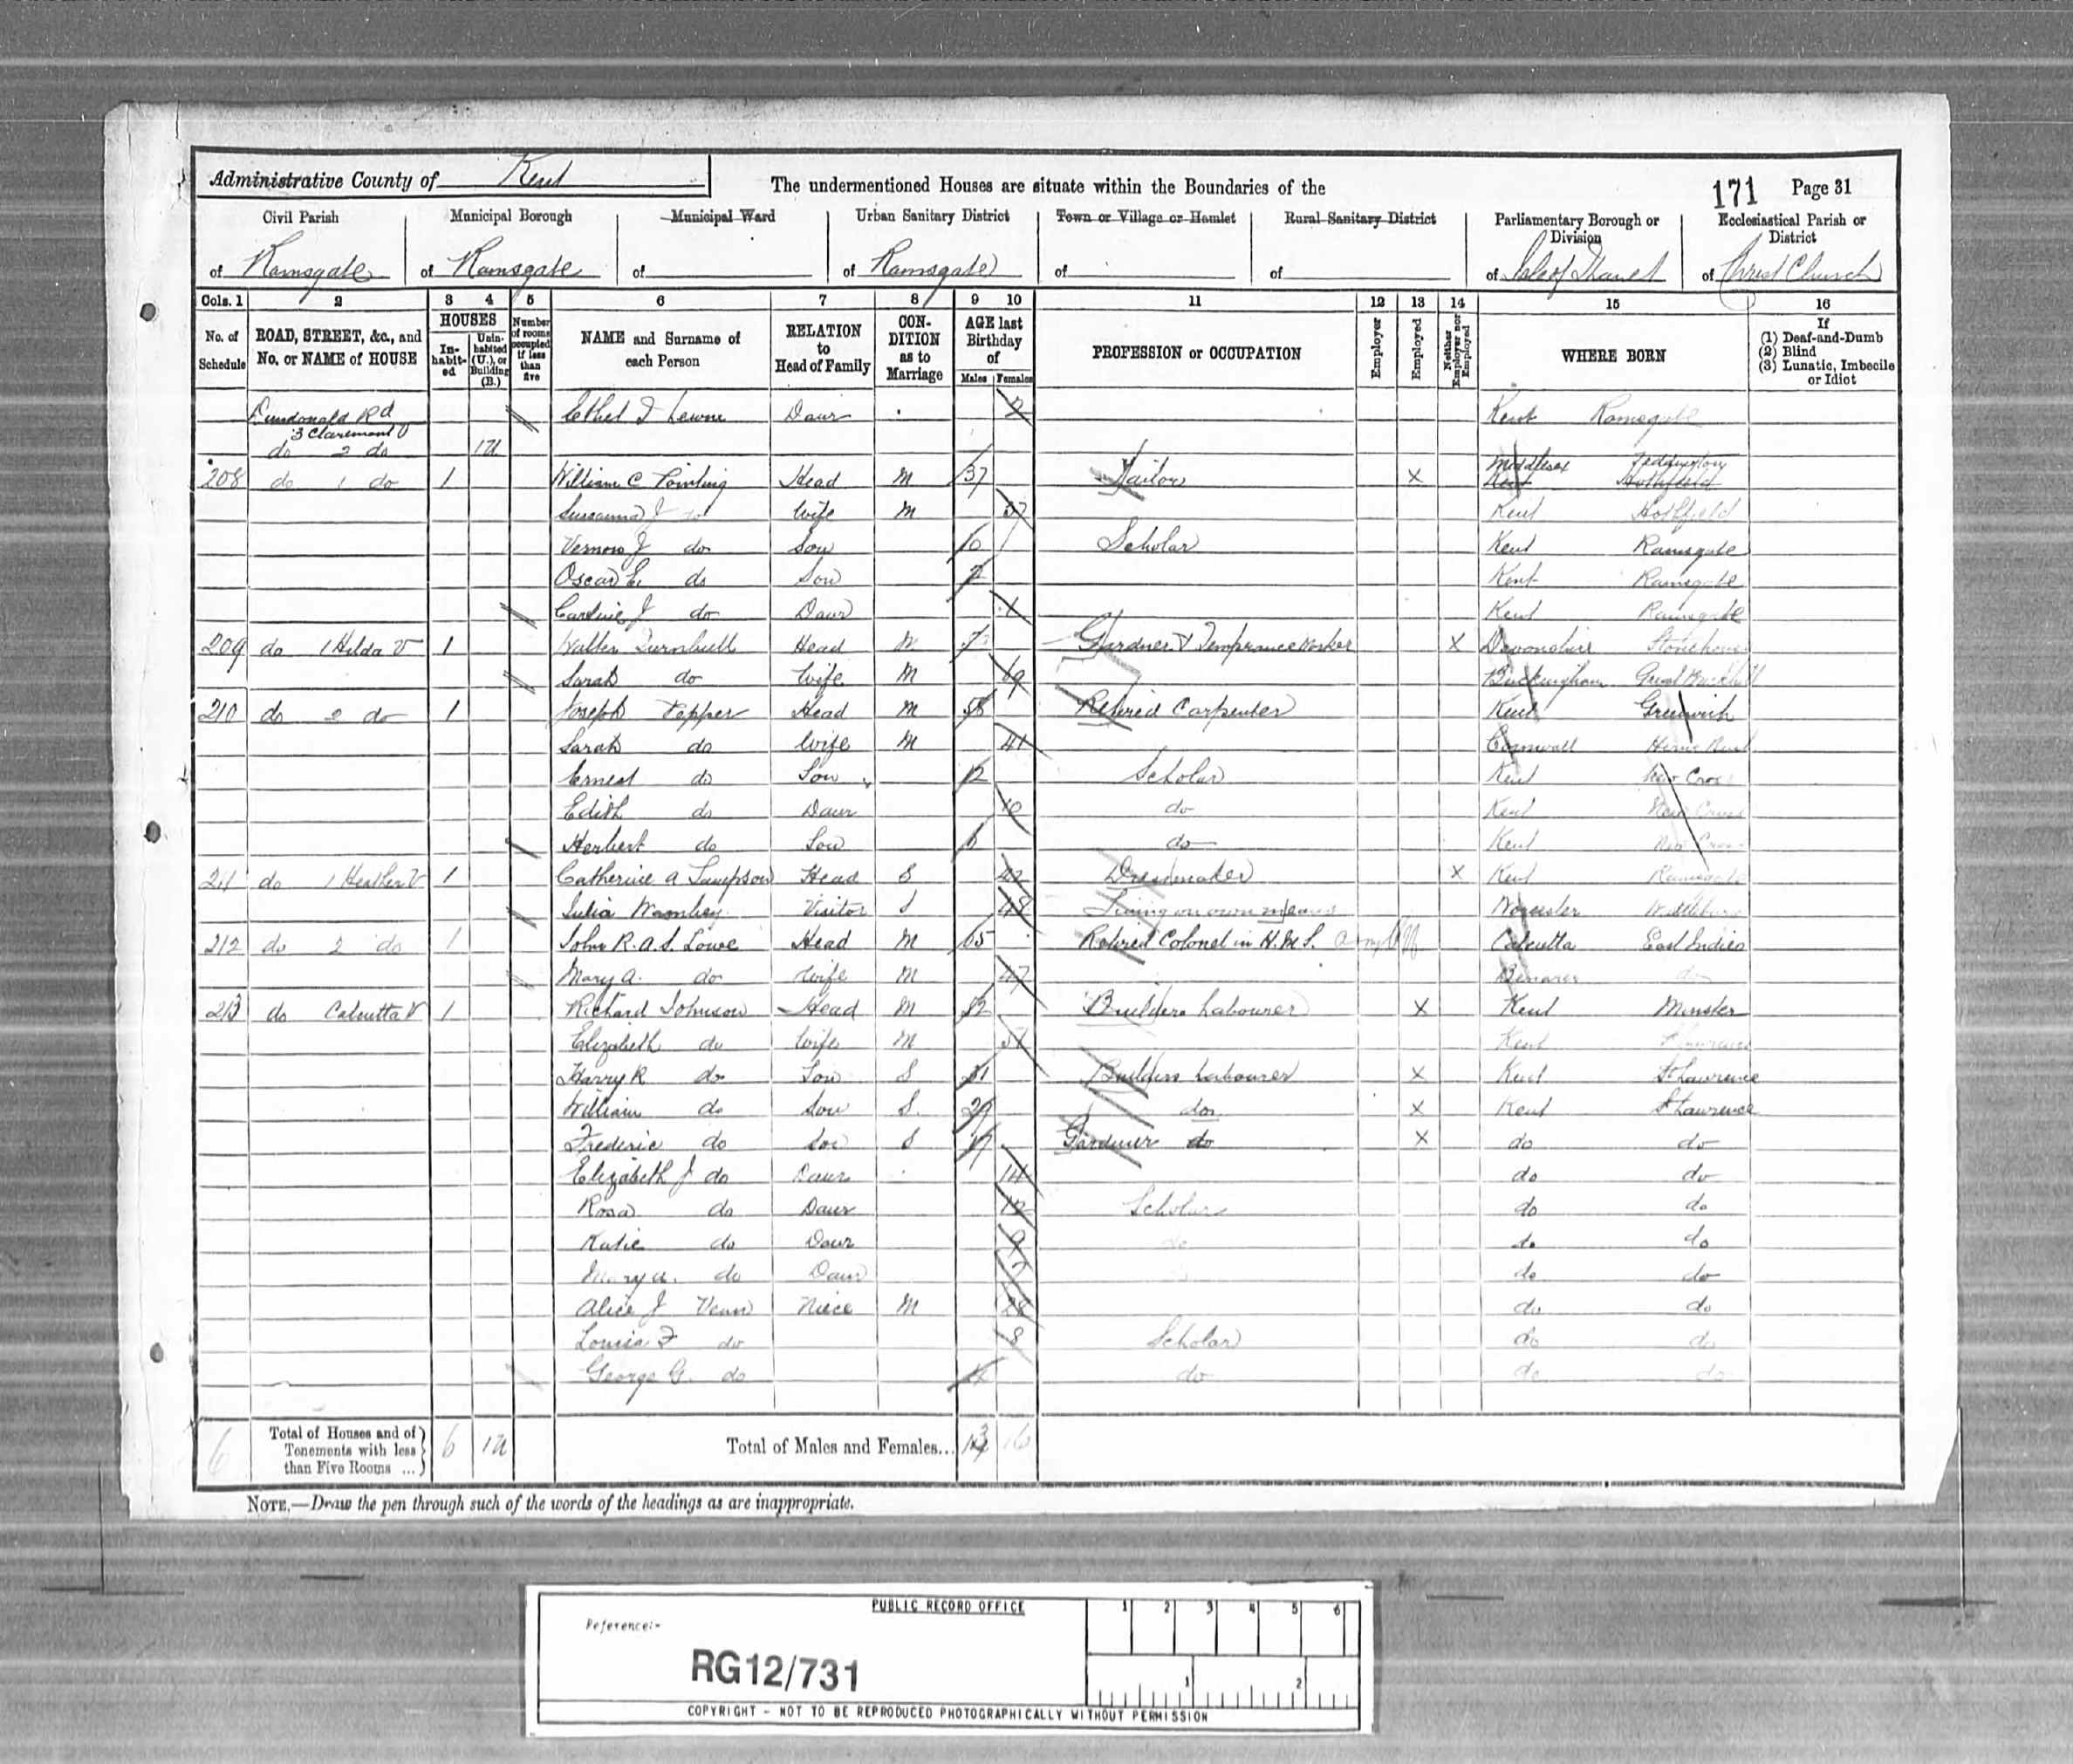 Administrative County of Kent
The undermentioned Houses are situate within the Boundaries of the
171 Page 31
Civil Parish of Ramsgate
Municipal Borough of Ramsgate
Municipal Ward of
Urban Sanitary District of Ramsgate
Town or Village or Hamlet of
Rural Sanitary District of
Parliamentary Borough or Division of Isle of Thanet
Ecclesiastical Parish or District of Christ Church
Cols. 1 2 3 4 5 6 7 8 9 10 11 12 13 14 15 16
No. of Schedule
ROAD, STREET, &c., and No. or NAME of HOUSE
HOUSES
Inhabited
Uninhabited (U.), or Building (B.)
Number of rooms occupied if less than five
NAME and Surname of each Person
RELATION to Head of Family
CONDITION as to Marriage
AGE last Birthday of
Males Females
PROFESSION or OCCUPATION
Employer
Employed
Neither Employer nor Employed
WHERE BORN
If
(1) Deaf-and-Dumb
(2) Blind
(3) Lunatic, Imbecile or Idiot
Dundonald Rd
3 Claremont V
Ethel Daur Kent Ramsgate
do 2 do 1U
208 do 1 do 1 William C Head M 37 Tailor X Middlesex Teddington
Kent Hothfield
Susanna J do Wife M 37 Kent Hothfield
Vernon J do Son 10 Scholar Kent Ramsgate
Oscar E. do Son Kent Ramsgate
Caroline J do Daur 1 Kent Ramsgate
209 do 1 Hilda V 1 Walter Turnbull Head Gardner & Temprance Worker X Devonshire Stonehouse
Sarah do Wife M 69 Buckingham Great
210 do 2 do 1 Joseph Pepper Head M 58 Retired Carpenter Kent Greenwich
Sarah do Wife M 41 Cornwall
Ernest do Son 12 Scholar Kent New Cross
Edith do Daur 10 do Kent New Cross
Herbert do Son 6 do Kent New Cross
211 do 1 Heather V 1 Catherine A Head S 42 Dressmaker X Kent Ramsgate
Julia Visitor S 48 Living on own means Worcester
212 do 2 do 1 John R. A. S. Lowe Head M 65 Retired Colonel in H.M.S. Army Calcutta East Indies
Mary A. do Wife M 47 Benares do
213 do Calcutta V 1 Richard Johnson Head M 52 Builders Labourer X Kent Minster
Elizabeth do Wife M 51 Kent St Lawrence
Harry R do Son S 21 Builders Labourer X Kent St Lawrence
William do Son S. 20 do X Kent St Lawrence
Frederic do Son S 17 Gardner do X do do
Elizabeth J do Daur 14 do do
Rosa do Daur 12 Scholar do do
Katie do Daur 9 do do do
Mary A. do Daur 7 do do do
Alice J Venn Niece M 28 do do
Louisa F do 8 Scholar do do
George G. do 4 do do do
6
Total of Houses and of Tenements with less than Five Rooms ... 6 1U
Total of Males and Females... 13 16
NOTE.—Draw the pen through such of the words of the headings as are inappropriate.
PUBLIC RECORD OFFICE
1 2 3 4 5 6
Reference:-
RG12/731
1 2
COPYRIGHT - NOT TO BE REPRODUCED PHOTOGRAPHICALLY WITHOUT PERMISSION